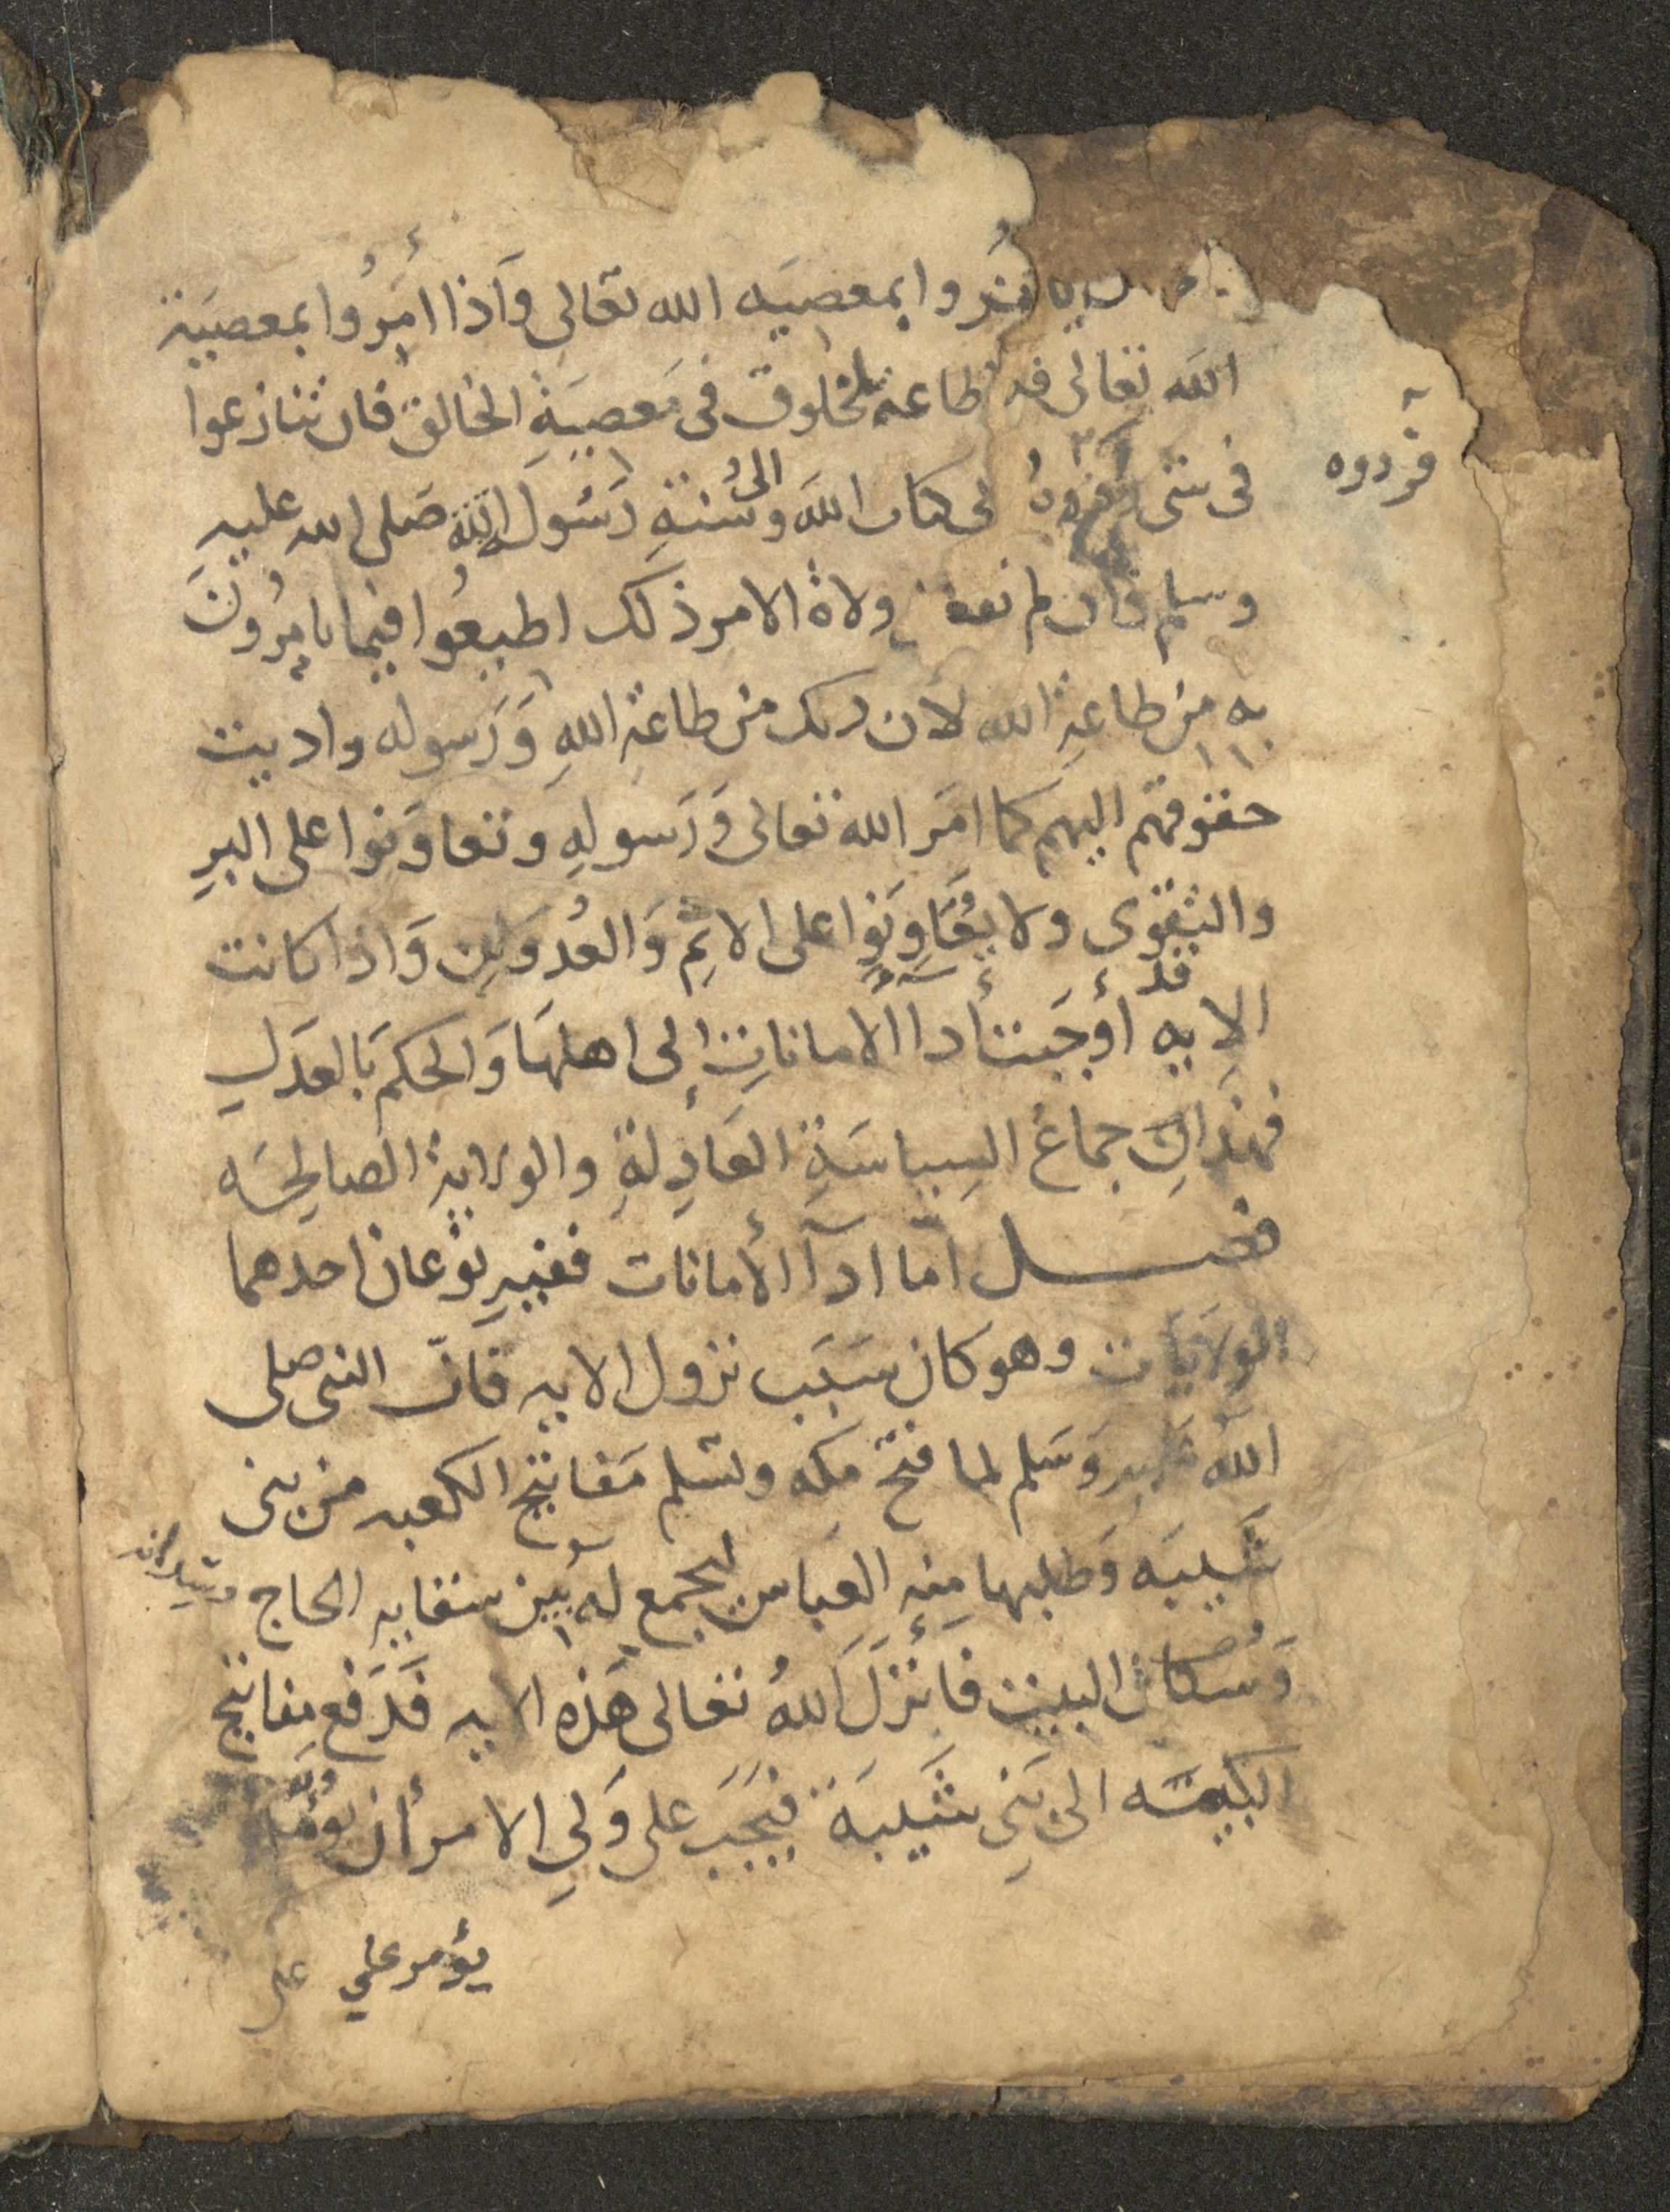 يامروا بمعصيه الله تعالى وَاذا اُمِرُوا بمعصيَة
الله تعالى فلا طاعة لمخلوق فى مَعصيَةِ الخالق فان تنازعوا
فى شى فردوهُ الى كتاب الله والى سُنةِ رَسُول الله صَلى الله عليه
فردوه
وسلم فان لم تفعل ولاة الامر ذلك اطيعُوا فيما يامِرُونَ
به مِن طاعةِ الله لأن ذلك من طاعَةِ اللهِ وَرَسوله واديت
حقوقهم اليهم كما امَر الله تعالى وَرَسولِهِ وتعاوَنوا على البرِ
والتقوى ولا يُعَاوِنَوا على الاثِم وَالعُدوَان وَاذا كانت
الايه قد أوجَبت أدا الأمانات إلى اهلهَا وَالحكم بَالعدَلِ
فهذانِ جماعُ السِياسَةِ العَادِلةِ والولايةِ الصالحَه
فصل امّا ادآ الأمانات ففيهِ نوعان احدهما
الولايَات وهو كان سَبَب نزول الايه فانّ النبى صلى
اللهُ عليه وَسَلم لما فتح مكه وتسَلم مَفاتيح الكعبه من بنى
شَيبَه وَطلبها مِنهِ العباس ليجمع لهُ بَين سقايه الحاج وسدانه
وَسكان البيت فأنزَلَ اللهُ تعالى هَذه الايه فَدَفع مفاتيح
الكعبَه الى بَنِى شَيبَةَ فيَجَب على وَلىِ الامر أن يؤمّر
يؤمر على على